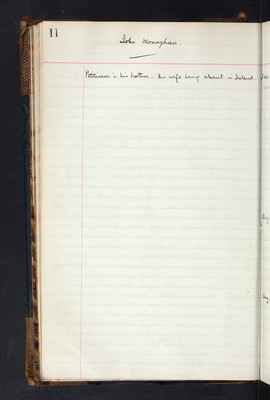 11
John Monaghan.
Petitioner is his brother. His wife being absent in Ireland.